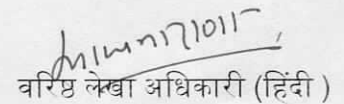 वरिष्ठ लेखा अधिकारी (हिंदी )